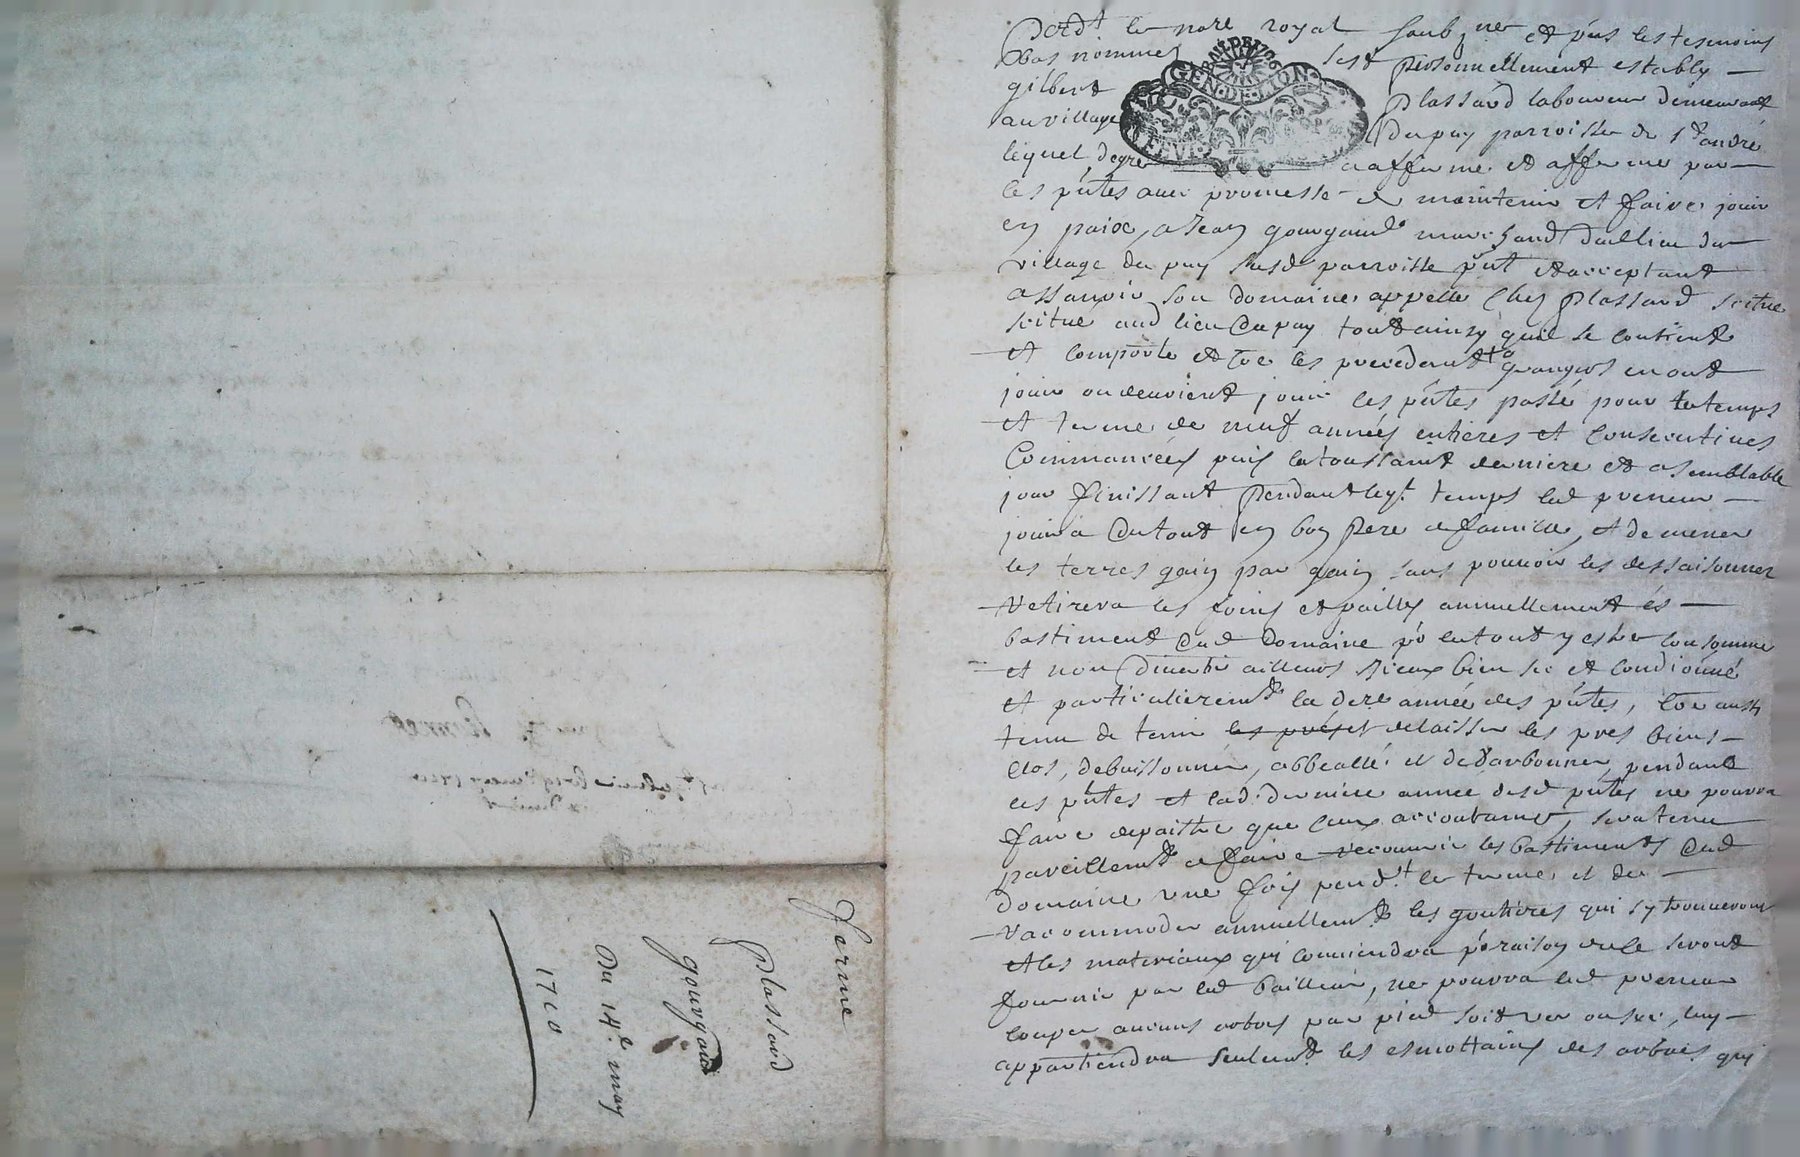 Pardt le nore royal soubzne et pnts les tesmoins
bas nommez sest personnellement estably
gilbert plassard laboureur demeurant
au village du puy parroisse de St andré
lequel degré a affermé et afferme par
ces pntes avec promesse de maintenir et faire jouir
en paix, a Jean gourgaud marchand du lieu du
village du puy susd parroisse pnt et acceptant
assauoir son domaine appellé Chez plassard scitue
scitué aud lieu du puy tout ainsy quil se contient
et comporte et que les precedentz grangers en ont
joui ou deuvient jouir ces pntes passé pour le temps
et terme de neuf années entieres et consecutives
Commancées puis la toussaint derniere et a semblable
jour finissant pendant leqt temps led preneur
jouira du tout en bon pere de famille, et de mener
les terres gain par gain sans pouvoir les dessaisonner
retirera les foins et pailles annuellement és
bastiment dud domaine po le tout y estre consommé
et non diverti ailleurs iceux bien sec et condionné
et particulieremt la dere année des pntes, sera aussy
tenu de tenir les prés et delaisser les pres biens
clos, debuissonner, abbeallé et dedarbonner, pendant
ces pntes et lad. derniere année desd pntes ne pourra
faire depaitre que ceux accoutumés, sera tenu
pareillemt de faire recouvrir les bastiments dud
domaine une fois pendt le terme et de
racommoder annuellemt les goutieres qui sy trouueront
et les materiaux qui conviendra po raison de ce seront
fournir par led bailleur, ne pourra led preneur
couper aucuns arbres par pied soit ver ou sec, luy
appartiendra seulemt les esmottains des arbres qui
BAIL DE 1706
GEN·DE·LION·
ferme
plassard
gourgaud
Du 14e. may
1710